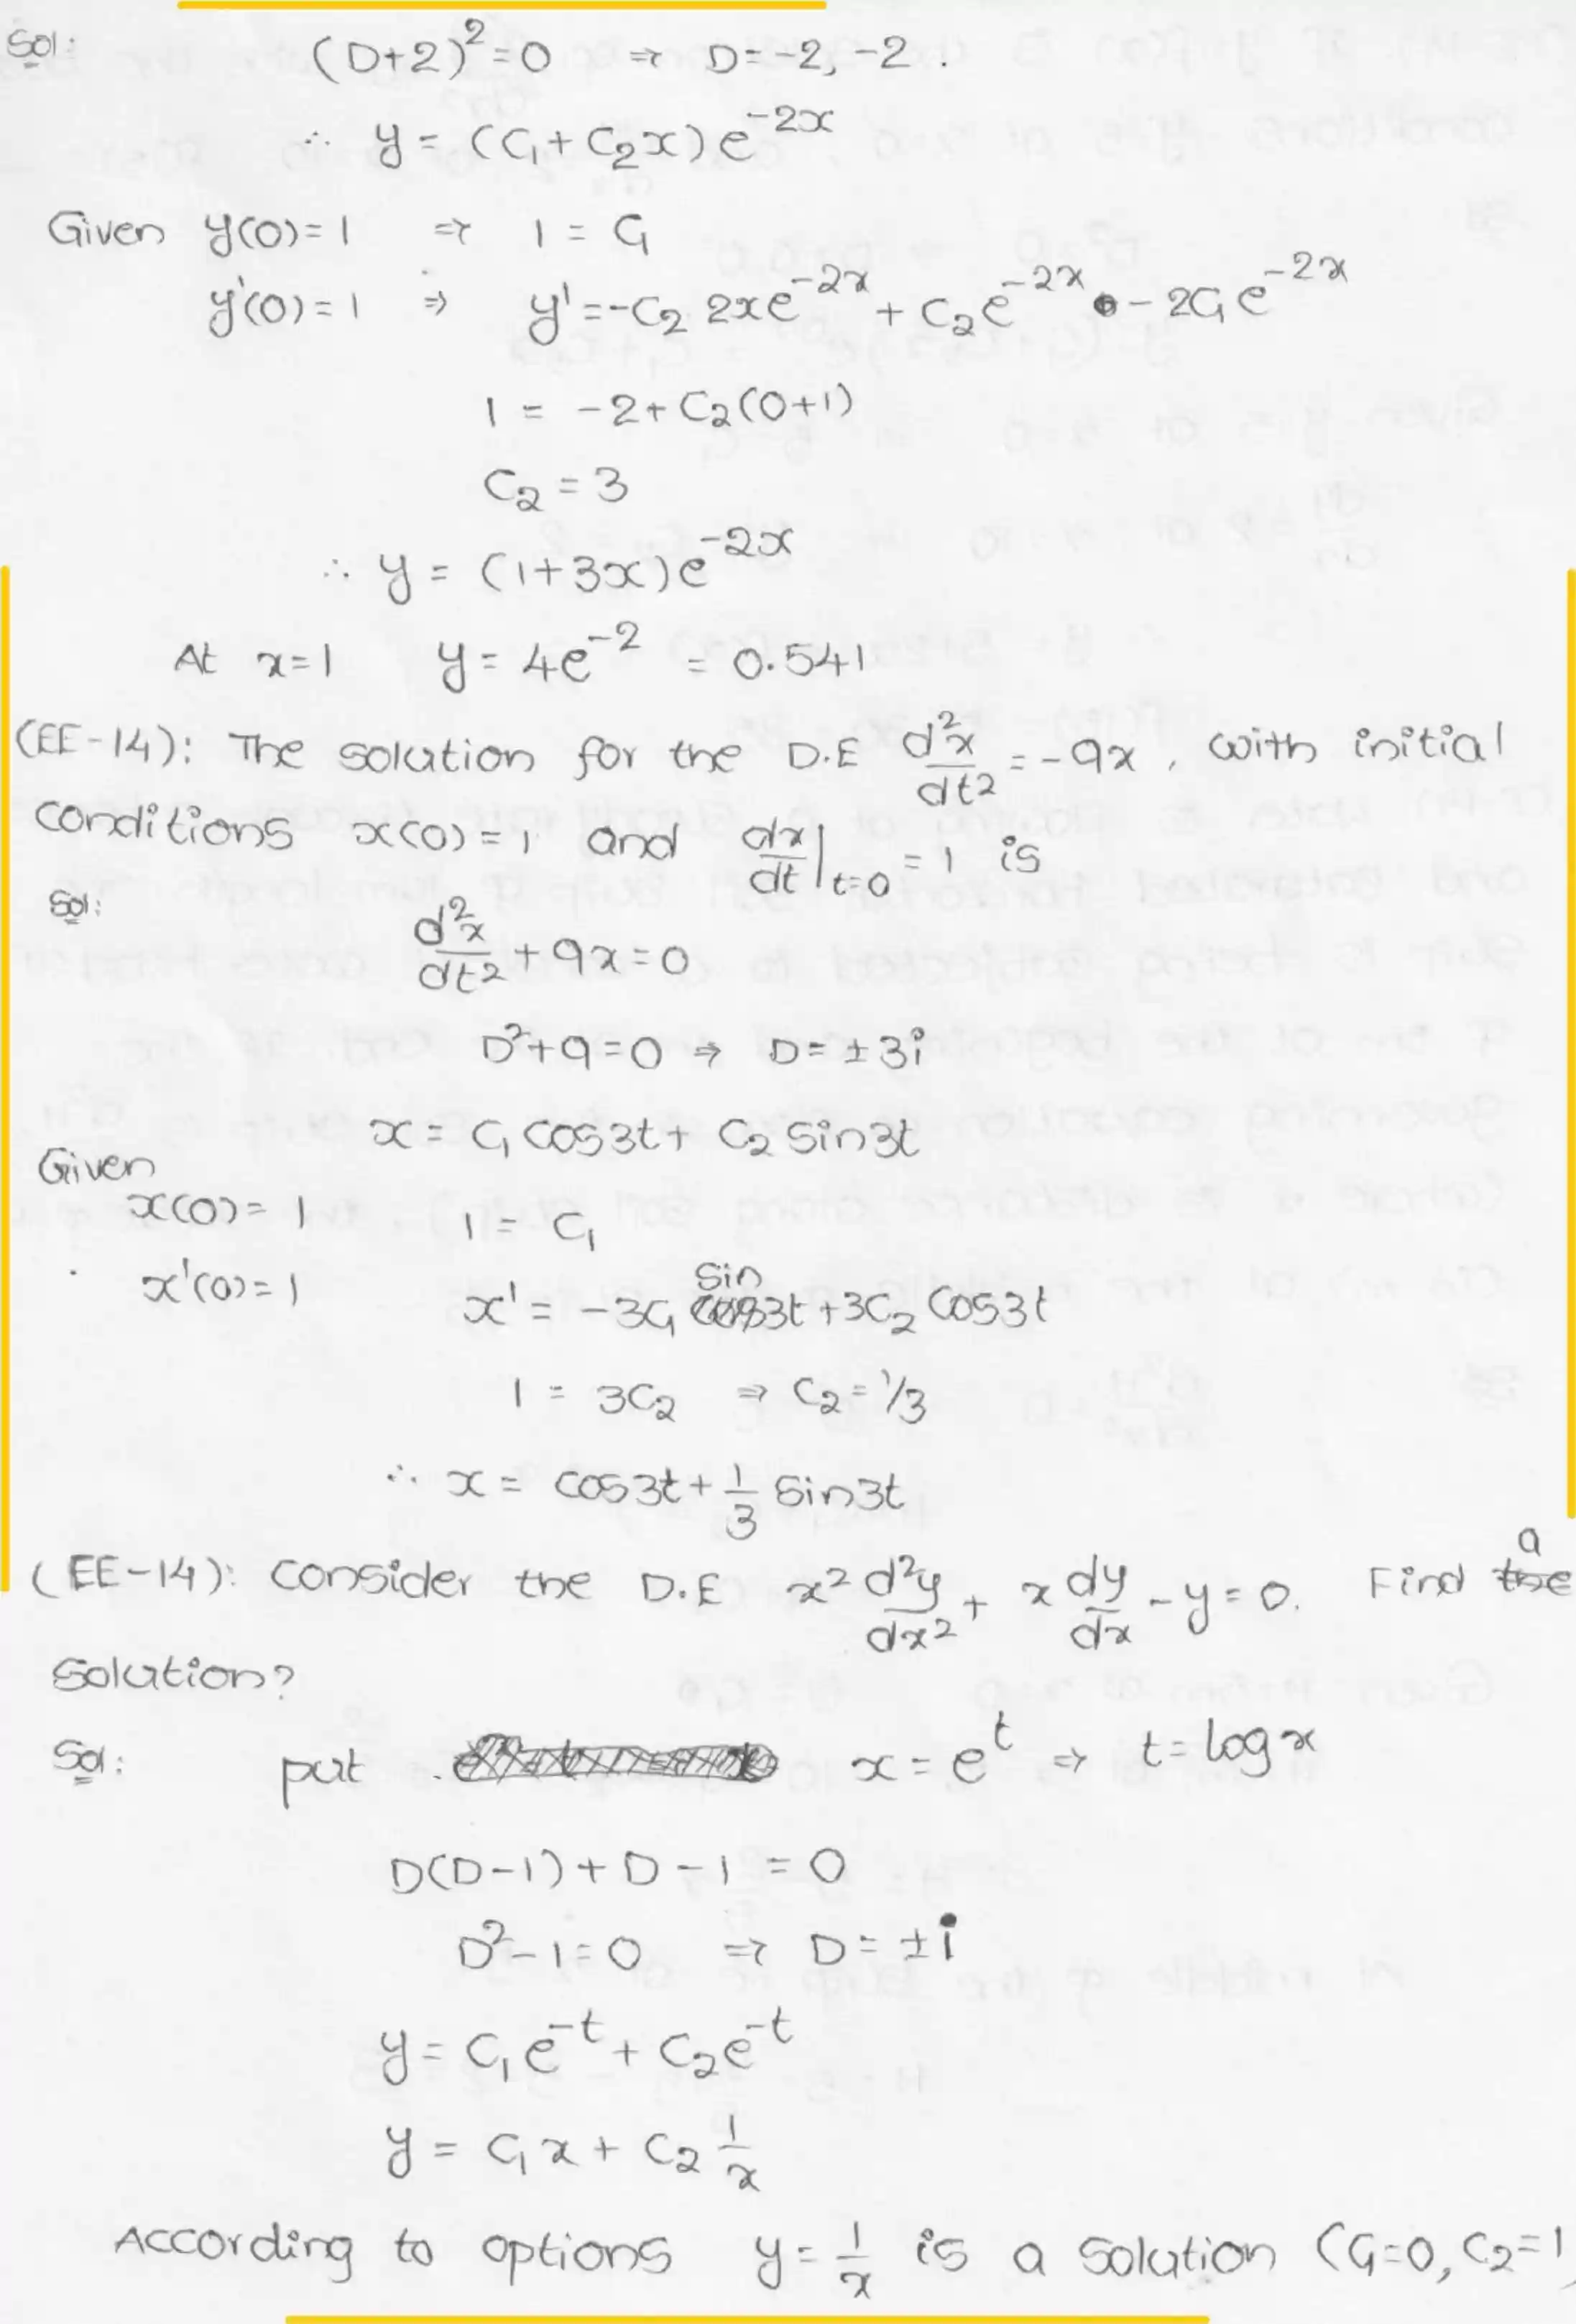 Sol:
(D+2)²=0 ⇒ D=-2,-2.
∴ y = (C₁+C₂x)e^{-2x}
Given y(0)=1 ⇒ 1 = C₁
y'(0)=1 ⇒ y'=-C₂ 2xe^{-2x} + C₂e^{-2x} - 2C₁e^{-2x}
1 = -2+C₂(0+1)
C₂ = 3
∴ y = (1+3x)e^{-2x}
At x=1 y = 4e^{-2} = 0.541
(EE-14): The solution for the D.E d²x/dt² = -9x, with initial
conditions x(0)=1 and dx/dt|_{t=0} = 1 is
Sol:
d²x/dt² + 9x = 0
D²+9=0 ⇒ D= ±3i
x = C₁ cos3t + C₂ sin3t
Given
x(0)=1 1 = C₁
x'(0)=1 x' = -3C₁ sin3t + 3C₂ cos3t
1 = 3C₂ ⇒ C₂=1/3
∴ x = cos3t + 1/3 sin3t
(EE-14): Consider the D.E x² d²y/dx² + x dy/dx - y = 0. Find a the
solution?
Sol: put x = e^t ⇒ t = log x
D(D-1)+D-1 = 0
D²-1=0 ⇒ D= ±i
y = C₁e^{-t} + C₂e^{-t}
y = C₁x + C₂ 1/x
According to options y = 1/x is a solution (C₁=0, C₂=1)